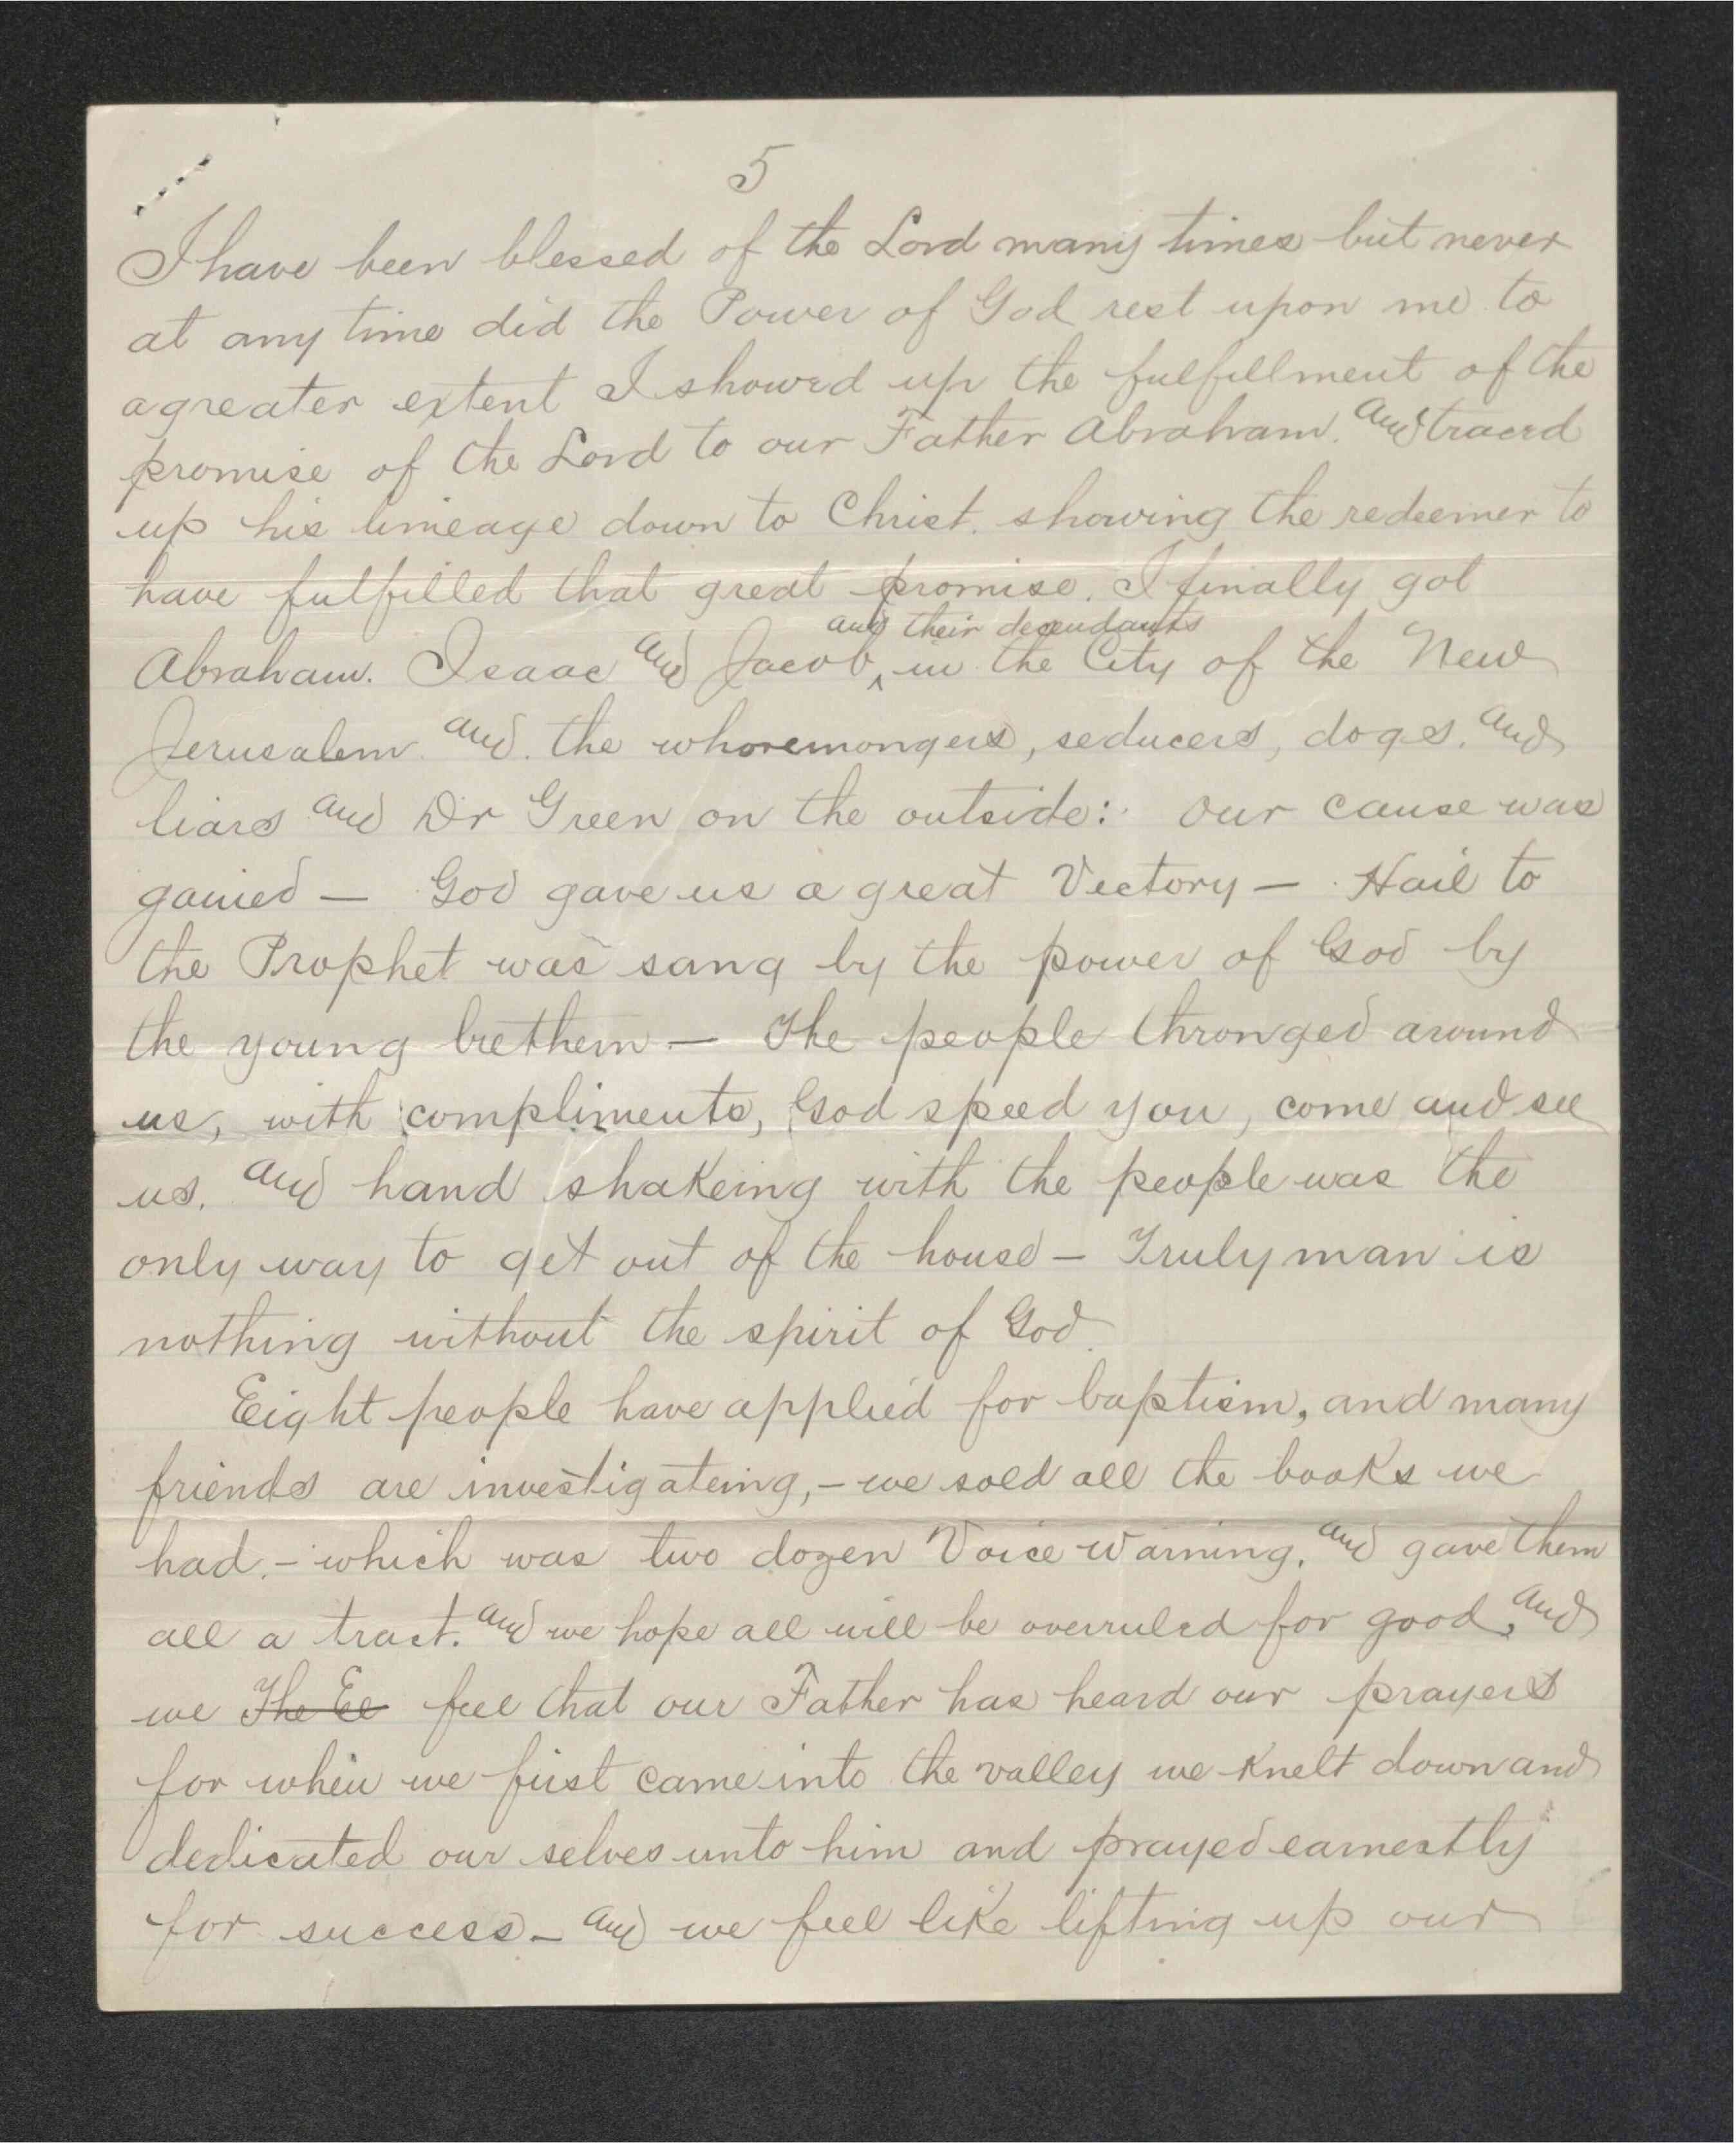 5
I have been blessed of the Lord many times but never
at any time did the Power of God rest upon me to
a greater extent I showed up the fulfillment of the
promise of the Lord to our Father Abraham. and traced
up his lineage down to Christ. showing the redeemer to
have fulfilled that great promise. I finally got
and their decendants
Abraham. Isaac and Jacob ^ in the City of the New
Jerusalem and. the whoremongers, seducers, dogs. and
liars and Dr Green on the outside: Our cause was
gained — God gave us a great Victory — Hail to
the Prophet was sang by the power of God by
the young brethern — The people thronged around
us, with compliments, God speed you, come and see
us. and hand shakeing with the people was the
only way to get out of the house — Truly man is
nothing without the spirit of God.
Eight people have applied for baptism, and many
friends are investigateing, — we sold all the books we
had. — which was two dozen Voice Warning. and gave them
all a tract. and we hope all will be overruled for good, and
we The El feel that our Father has heard our prayers
for when we first came into the valley we knelt down and
dedicated our selves unto him and prayed earnestly
for success — and we feel like lifting up our